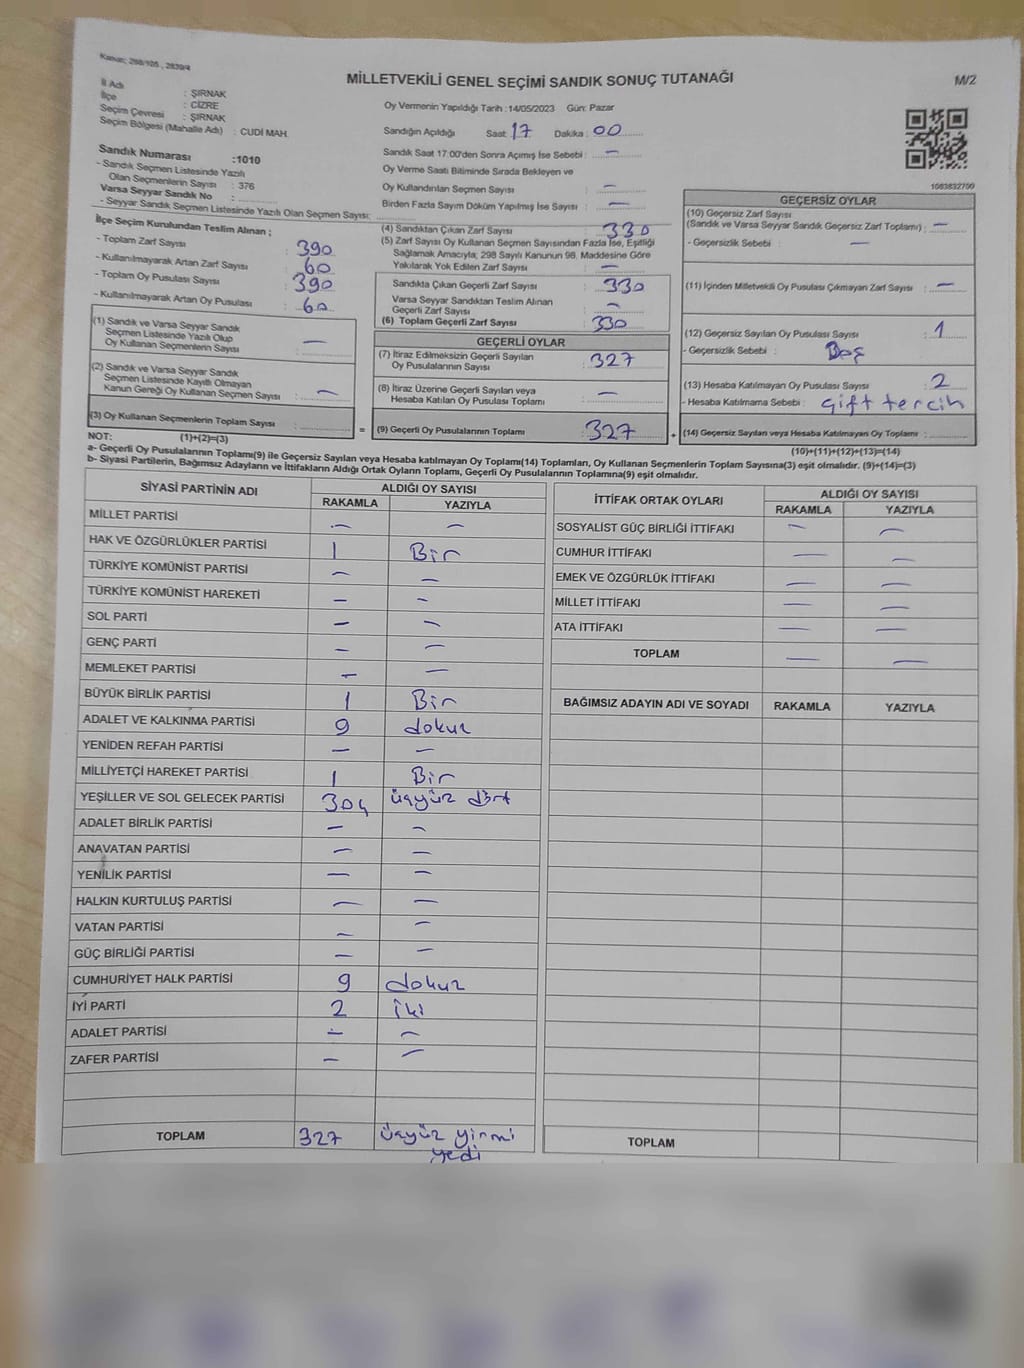 Kanun: 298/105 , 2839/4
MİLLETVEKİLİ GENEL SEÇİMİ SANDIK SONUÇ TUTANAĞI
M/2
İl Adı : ŞIRNAK
İlçe : CİZRE
Seçim Çevresi : ŞIRNAK
Seçim Bölgesi (Mahalle Adı) : CUDİ MAH.
Sandık Numarası :1010
- Sandık Seçmen Listesinde Yazılı
Olan Seçmenlerin Sayısı : 376
Varsa Seyyar Sandık No :
- Seyyar Sandık Seçmen Listesinde Yazılı Olan Seçmen Sayısı:
Oy Vermenin Yapıldığı Tarih :14/05/2023 Gün: Pazar
Sandığın Açıldığı Saat 17 Dakika : 00
Sandık Saat 17:00'den Sonra Açılmış İse Sebebi : —
Oy Verme Saati Bitiminde Sırada Bekleyen ve
Oy Kullandırılan Seçmen Sayısı : —
Birden Fazla Sayım Döküm Yapılmış İse Sayısı : —
1083832700
İlçe Seçim Kurulundan Teslim Alınan ;
- Toplam Zarf Sayısı : 390
- Kullanılmayarak Artan Zarf Sayısı : 60
- Toplam Oy Pusulası Sayısı : 390
- Kullanılmayarak Artan Oy Pusulası : 60
(1) Sandık ve Varsa Seyyar Sandık
Seçmen Listesinde Yazılı Olup
Oy Kullanan Seçmenlerin Sayısı : —
(2) Sandık ve Varsa Seyyar Sandık
Seçmen Listesinde Kayıtlı Olmayan
Kanun Gereği Oy Kullanan Seçmen Sayısı : —
(3) Oy Kullanan Seçmenlerin Toplam Sayısı :
(4) Sandıktan Çıkan Zarf Sayısı : 330
(5) Zarf Sayısı Oy Kullanan Seçmen Sayısından Fazla İse, Eşitliği
Sağlamak Amacıyla; 298 Sayılı Kanunun 98. Maddesine Göre
Yakılarak Yok Edilen Zarf Sayısı : —
Sandıkta Çıkan Geçerli Zarf Sayısı : 330
Varsa Seyyar Sandıktan Teslim Alınan
Geçerli Zarf Sayısı : —
(6) Toplam Geçerli Zarf Sayısı : 330
GEÇERLİ OYLAR
(7) İtiraz Edilmeksizin Geçerli Sayılan
Oy Pusulalarının Sayısı : 327
(8) İtiraz Üzerine Geçerli Sayılan veya
Hesaba Katılan Oy Pusulası Toplamı : —
= (9) Geçerli Oy Pusulalarının Toplamı : 327 +
GEÇERSİZ OYLAR
(10) Geçersiz Zarf Sayısı
(Sandık ve Varsa Seyyar Sandık Geçersiz Zarf Toplamı) : —
- Geçersizlik Sebebi : —
(11) İçinden Milletvekili Oy Pusulası Çıkmayan Zarf Sayısı : —
(12) Geçersiz Sayılan Oy Pusulası Sayısı : 1
- Geçersizlik Sebebi : Boş
(13) Hesaba Katılmayan Oy Pusulası Sayısı : 2
- Hesaba Katılmama Sebebi : çift tercih
(14) Geçersiz Sayılan veya Hesaba Katılmayan Oy Toplamı :
NOT: (1)+(2)=(3)
(10)+(11)+(12)+(13)=(14)
a- Geçerli Oy Pusulalarının Toplamı(9) ile Geçersiz Sayılan veya Hesaba katılmayan Oy Toplamı(14) Toplamları, Oy Kullanan Seçmenlerin Toplam Sayısına(3) eşit olmalıdır. (9)+(14)=(3)
b- Siyasi Partilerin, Bağımsız Adayların ve İttifakların Aldığı Ortak Oyların Toplamı, Geçerli Oy Pusulalarının Toplamına(9) eşit olmalıdır.
SİYASİ PARTİNİN ADI ALDIĞI OY SAYISI
RAKAMLA YAZIYLA
MİLLET PARTİSİ — —
HAK VE ÖZGÜRLÜKLER PARTİSİ 1 Bir
TÜRKİYE KOMÜNİST PARTİSİ — —
TÜRKİYE KOMÜNİST HAREKETİ — —
SOL PARTİ — —
GENÇ PARTİ — —
MEMLEKET PARTİSİ — —
BÜYÜK BİRLİK PARTİSİ 1 Bir
ADALET VE KALKINMA PARTİSİ 9 dokuz
YENİDEN REFAH PARTİSİ — —
MİLLİYETÇİ HAREKET PARTİSİ 1 Bir
YEŞİLLER VE SOL GELECEK PARTİSİ 304 üçyüz dört
ADALET BİRLİK PARTİSİ — —
ANAVATAN PARTİSİ — —
YENİLİK PARTİSİ — —
HALKIN KURTULUŞ PARTİSİ — —
VATAN PARTİSİ — —
GÜÇ BİRLİĞİ PARTİSİ — —
CUMHURİYET HALK PARTİSİ 9 dokuz
İYİ PARTİ 2 iki
ADALET PARTİSİ — —
ZAFER PARTİSİ — —
TOPLAM 327 üçyüz yirmi
yedi
İTTİFAK ORTAK OYLARI ALDIĞI OY SAYISI
RAKAMLA YAZIYLA
SOSYALİST GÜÇ BİRLİĞİ İTTİFAKI — —
CUMHUR İTTİFAKI — —
EMEK VE ÖZGÜRLÜK İTTİFAKI — —
MİLLET İTTİFAKI — —
ATA İTTİFAKI — —
TOPLAM — —
BAĞIMSIZ ADAYIN ADI VE SOYADI RAKAMLA YAZIYLA
TOPLAM